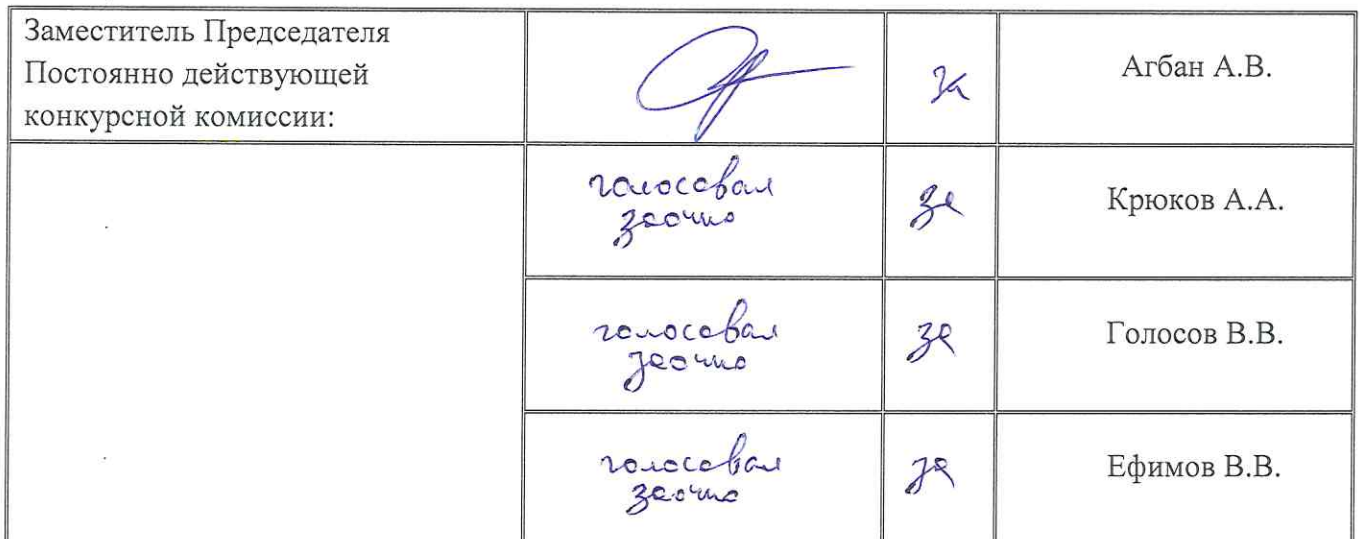 Заместитель Председателя
Постоянно действующей
конкурсной комиссии:
за
Агбан А.В.
голосовал
заочно
за
Крюков А.А.
голосовал
заочно
за
Голосов В.В.
голосовал
заочно
за
Ефимов В.В.